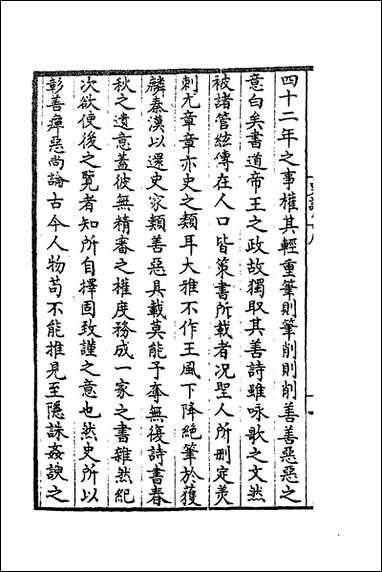 四十二年之事權其輕重筆則筆削則削善善惡惡之
意白矣書道帝王之政故獨取其善詩雖咏歌之文然
被諸管絃傳在人口皆策書所載者况聖人所刪定羙
刺尤章章亦史之類耳大雅不作王風下降絶筆於獲
麟秦漢以還史家類善惡具載莫能予奪無復詩書春
秋之遺意葢彼無精審之權度務成一家之書雜然紀
次欲使後之覽者知所自擇固致謹之意也然史所以
彰善癉惡尚論古今人物苟不能推見至隱誅姦諛之